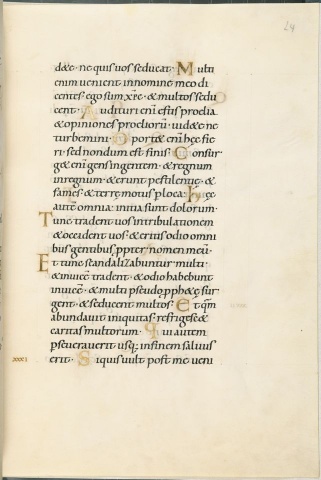 24
dete ne quis uos seducat. Multi
enim uenient in nomine meo di
centes. ego sum xр̄e. & multos sedu
cent. Audituri enī estis proelia
& opiniones proeliorū. uidete ne
turbemini. Oportet enī hęc fie
ri. sed nondum est finis. Consur
g& enī gens in gentem. & regnum
in regnum. & erunt pestilentię. &
fames. & terrę motus p loca. hęc
autē omnia. initia sunt dolorum.
Tunc tradent uos in tribulationem
& occident uos. & eritis odio omni
bus gentibus propter nomen meū.
Et tunc scandalizabuntur multi.
& inuicē tradent. & odio habebunt
inuicē. & multi pseudo pph&ę sur
gent. & seducent multos. Et qm̄
abundauit iniquitas. refriges&
caritas multorum. Qui autem
pseuerauerit usq; in finem saluus
xxxi erit. Si quis uult post me ueni